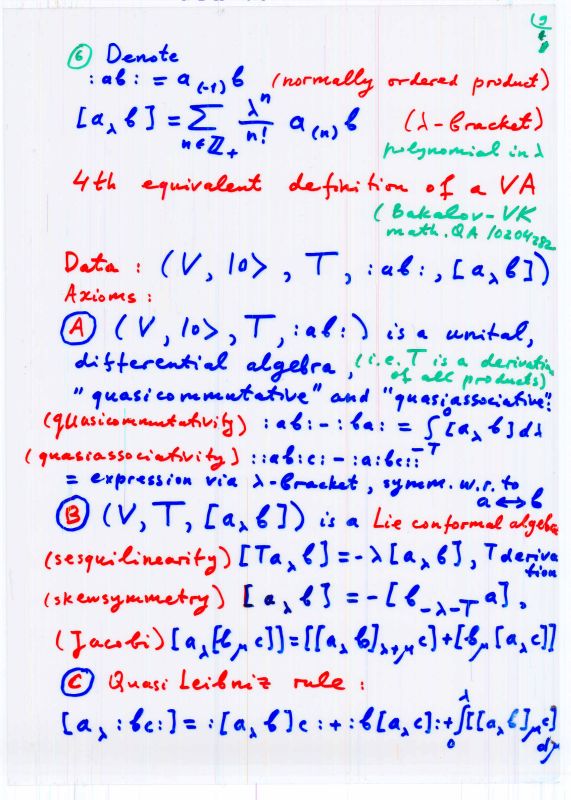 ⑥ Denote
:ab: = a₍₋₁₎b (normally ordered product)
[a_λ b] = Σ_{n∈ℤ₊} λⁿ/n! a₍ₙ₎b (λ-bracket)
polynomial in λ
4th equivalent definition of a VA
(Bakalov-VK
math.QA/0204282
Data: (V, |0>, T, :ab:, [a_λ b])
Axioms:
Ⓐ (V, |0>, T, :ab:) is a unital,
differential algebra, (i.e. T is a derivation
of all products)
"quasicommutative" and "quasiassociative":
(quasicommutativity) :ab: - :ba: = ∫_{-T}^{0} [a_λ b]dλ
(quasiassociativity) ::ab:c: - :a:bc::
= expression via λ-bracket, symm. w.r. to
a ↔ b
Ⓑ (V, T, [a_λ b]) is a Lie conformal algebra
(sesquilinearity) [Ta_λ b] = -λ[a_λ b], T deriva
tion
(skewsymmetry) [a_λ b] = -[b_{-λ-T} a],
(Jacobi) [a_λ[b_μ c]] = [[a_λ b]_{λ+μ} c] + [b_μ [a_λ c]]
Ⓒ Quasi Leibniz rule:
[a_λ :bc:] = :[a_λ b]c: + :b[a_λ c]: + ∫_0^λ [[a_λ b]_μ c]
dμ